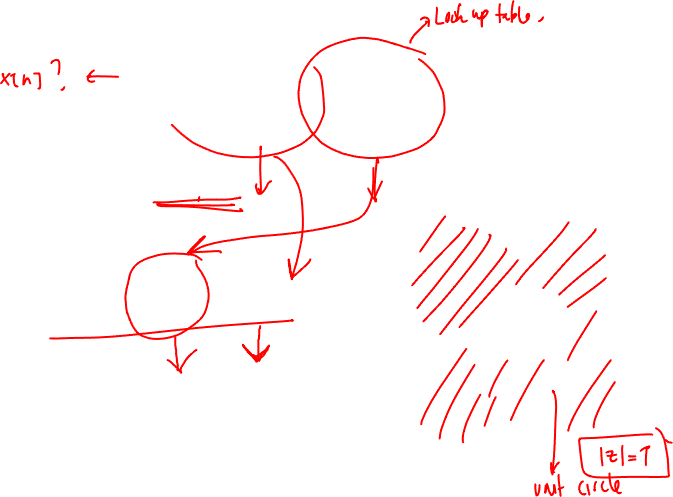 Look up table.
x[n]? ←
|z|=1
unit circle